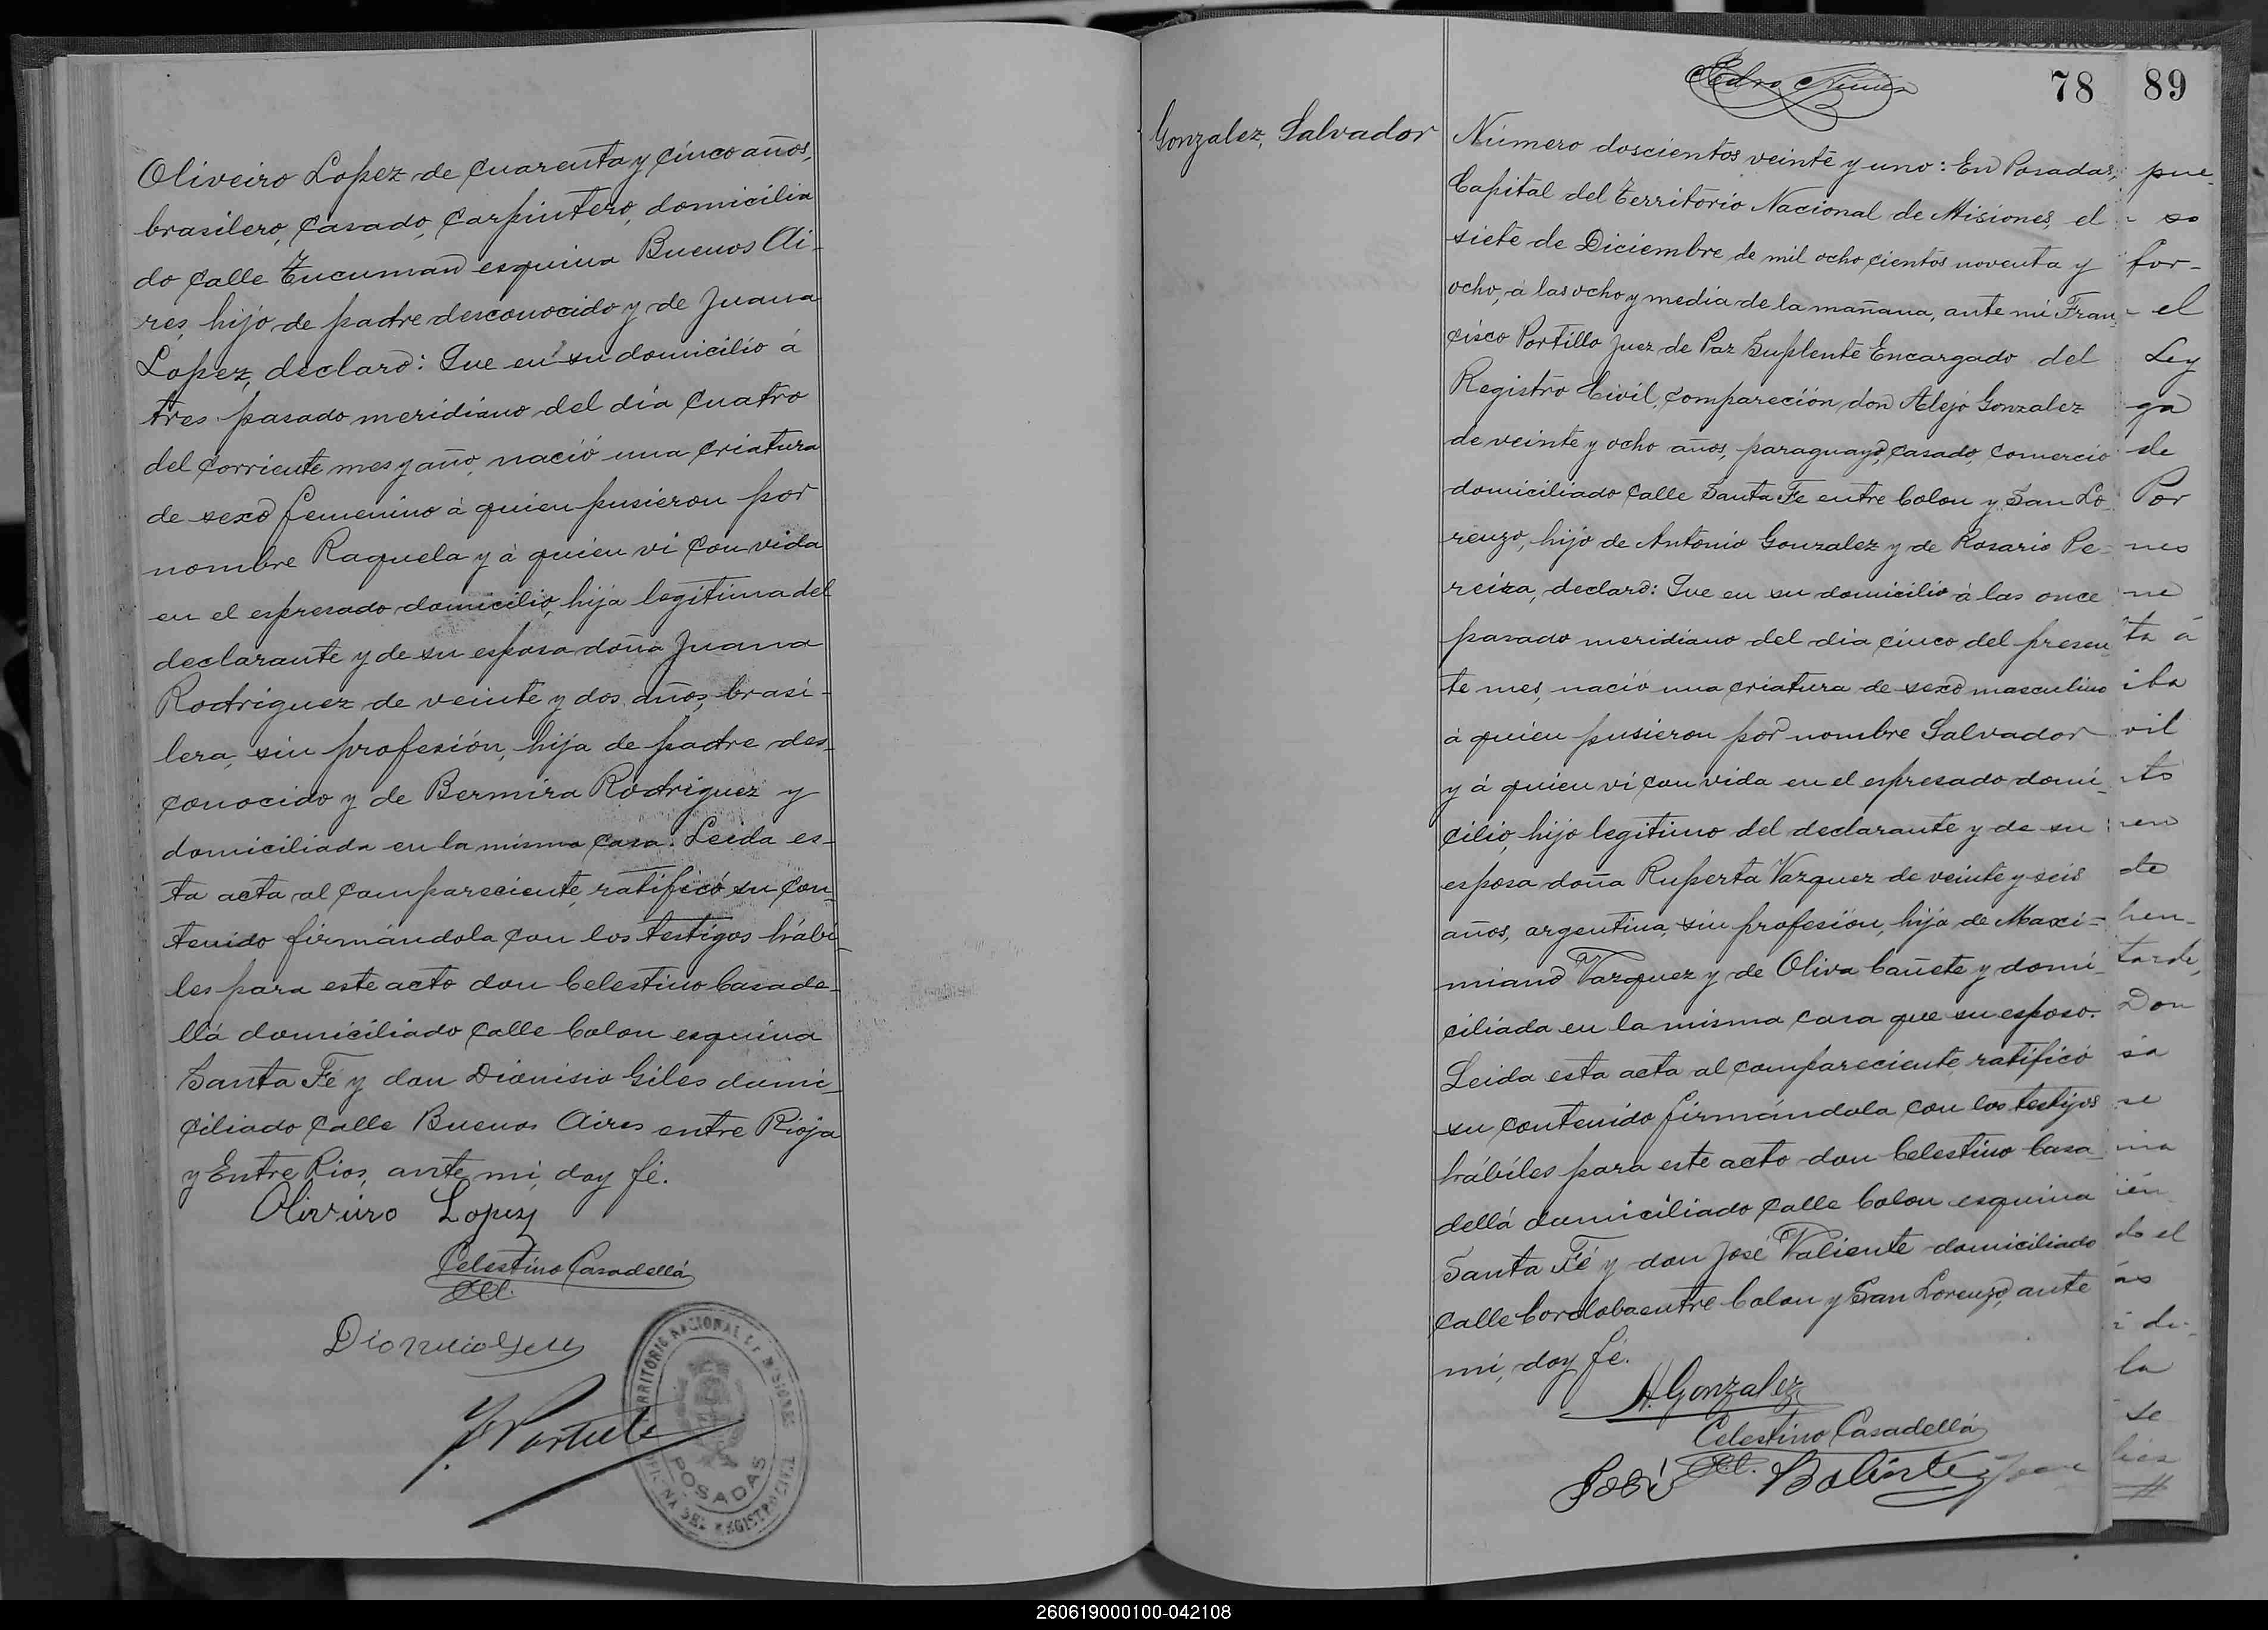 Oliveiro Lopez de cuarenta y cinco años,
brasilero, casado, carpintero, domicilia
do calle Tucuman esquina Buenos Ai-
res, hijo de padre desconocido y de Juana
Lopez, declaró: Que en su domicilio á
tres pasado meridiano del dia cuatro
del corriente mes y año, nació una criatura
de sexo femenino á quien pusieron por
nombre Raquela y á quien vi con vida
en el espresado domicilio, hija legitima del
declarante y de su esposa doña Juana
Rodriguez de veinte y dos años, brasi-
lera, sin profesión, hija de padre des-
conocido y de Bermira Rodriguez y
domiciliada en la misma casa. Leida es-
ta acta al compareciente, ratificó su con-
tenido firmándola con los testigos hábi-
les para este acto don Celestino Casade-
llá domiciliado calle Colon esquina
Santa Fé y don Dionisio Giles domi-
ciliado calle Buenos Aires entre Rioja
y Entre Rios, ante mi, doy fé.
Lopez
Celestino Casadellá
TERRITORIO NACIONAL DE MISIONES
POSADAS
OFICINA DEL REGISTRO CIVIL
Pedro
78
Gonzalez, Salvador
Número doscientos veinte y uno: En Posadas,
Capital del Territorio Nacional de Misiones, el
siete de Diciembre de mil ocho cientos noventa y
ocho, á las ocho y media de la mañana, ante mi Fran-
cisco Portillo Juez de Paz Suplente Encargado del
Registro Civil, compareción don Alejo Gonzalez
de veinte y ocho años, paraguayo, casado, comercio
domiciliado calle Santa Fe entre Colon y San Lo-
renzo, hijo de Antonio Gonzalez y de Rosario Pe-
reira, declaró: Que en su domicilio á las once
pasado meridiano del dia cinco del presen-
te mes, nació una criatura de sexo masculino
á quien pusieron por nombre Salvador
y á quien vi con vida en el espresado domi-
cilio, hijo legitimo del declarante y de su
esposa doña Ruperta Vazquez de veinte y seis
años, argentina, sin profesión, hija de Maxi-
miano Vazquez y de Oliva Cañete y domi-
ciliada en la misma casa que su esposo.
Leida esta acta al compareciente ratificó
su contenido firmándola con los testigos
hábiles para este acto don Celestino Casa-
dellá domiciliado calle Colon esquina
Santa Fé y don José Valiente domiciliado
calle Cordoba entre Colon y San Lorenzo, ante
mi, doy fé.
A. Gonzalez
Celestino Casadellá
José
89
pue-
so
for-
el
Ley
ga
de
Por
nes
ne
ta á
iba
vil
to
ren
de
hen-
tarde,
Don
sa
se
ina
ién
do el
la
se
260619000100-042108